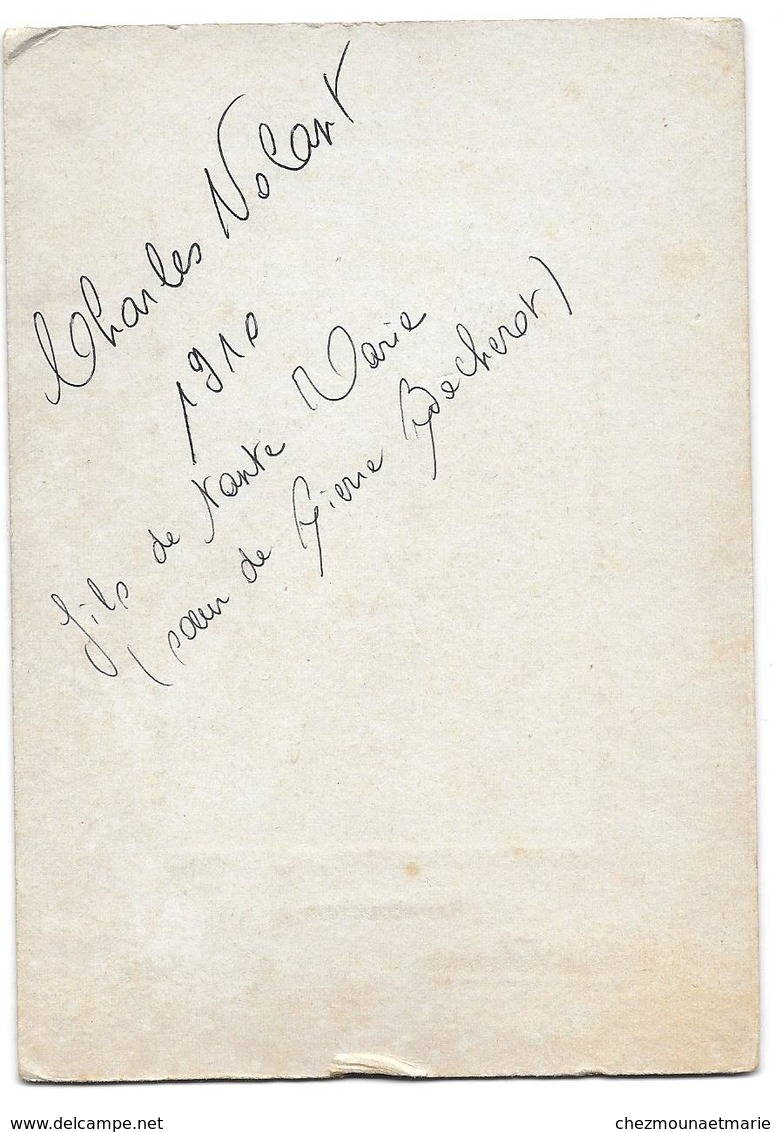 Charles Volant
1910
fils de Tante Marie
(sœur de Pierre Bacherot)
www.delcampe.net
chezmounaetmarie